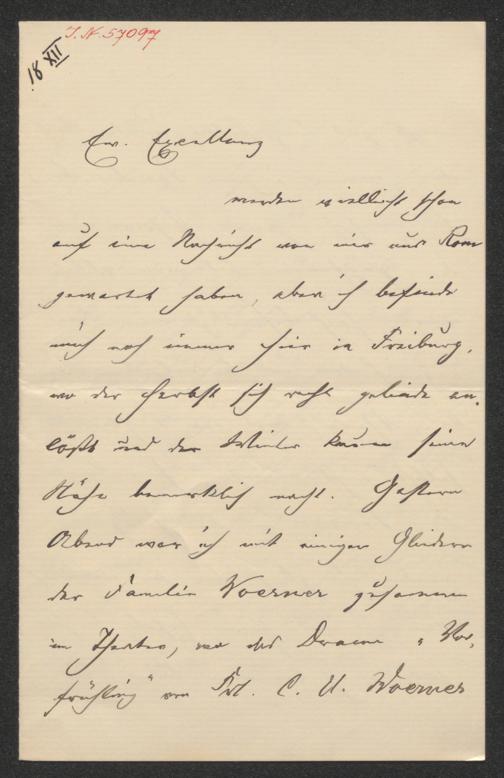 J. N. 57097
18 XII
Ew. Excellenz
werden vielleicht schon
auf eine Nachricht von mir aus Rom
gewartet haben, aber ich befinde
mich noch immer hier in Freiburg,
wo der Herbst sich recht gelinde an-
läßt und der Winter kaum seine
Nähe bemerklich macht. Gestern
Abend war ich mit einigen Gliedern
der Familie Woerner zusammen
im Theater, wo das Drama "Vor-
frühling" von Frl. C. U. Woerner